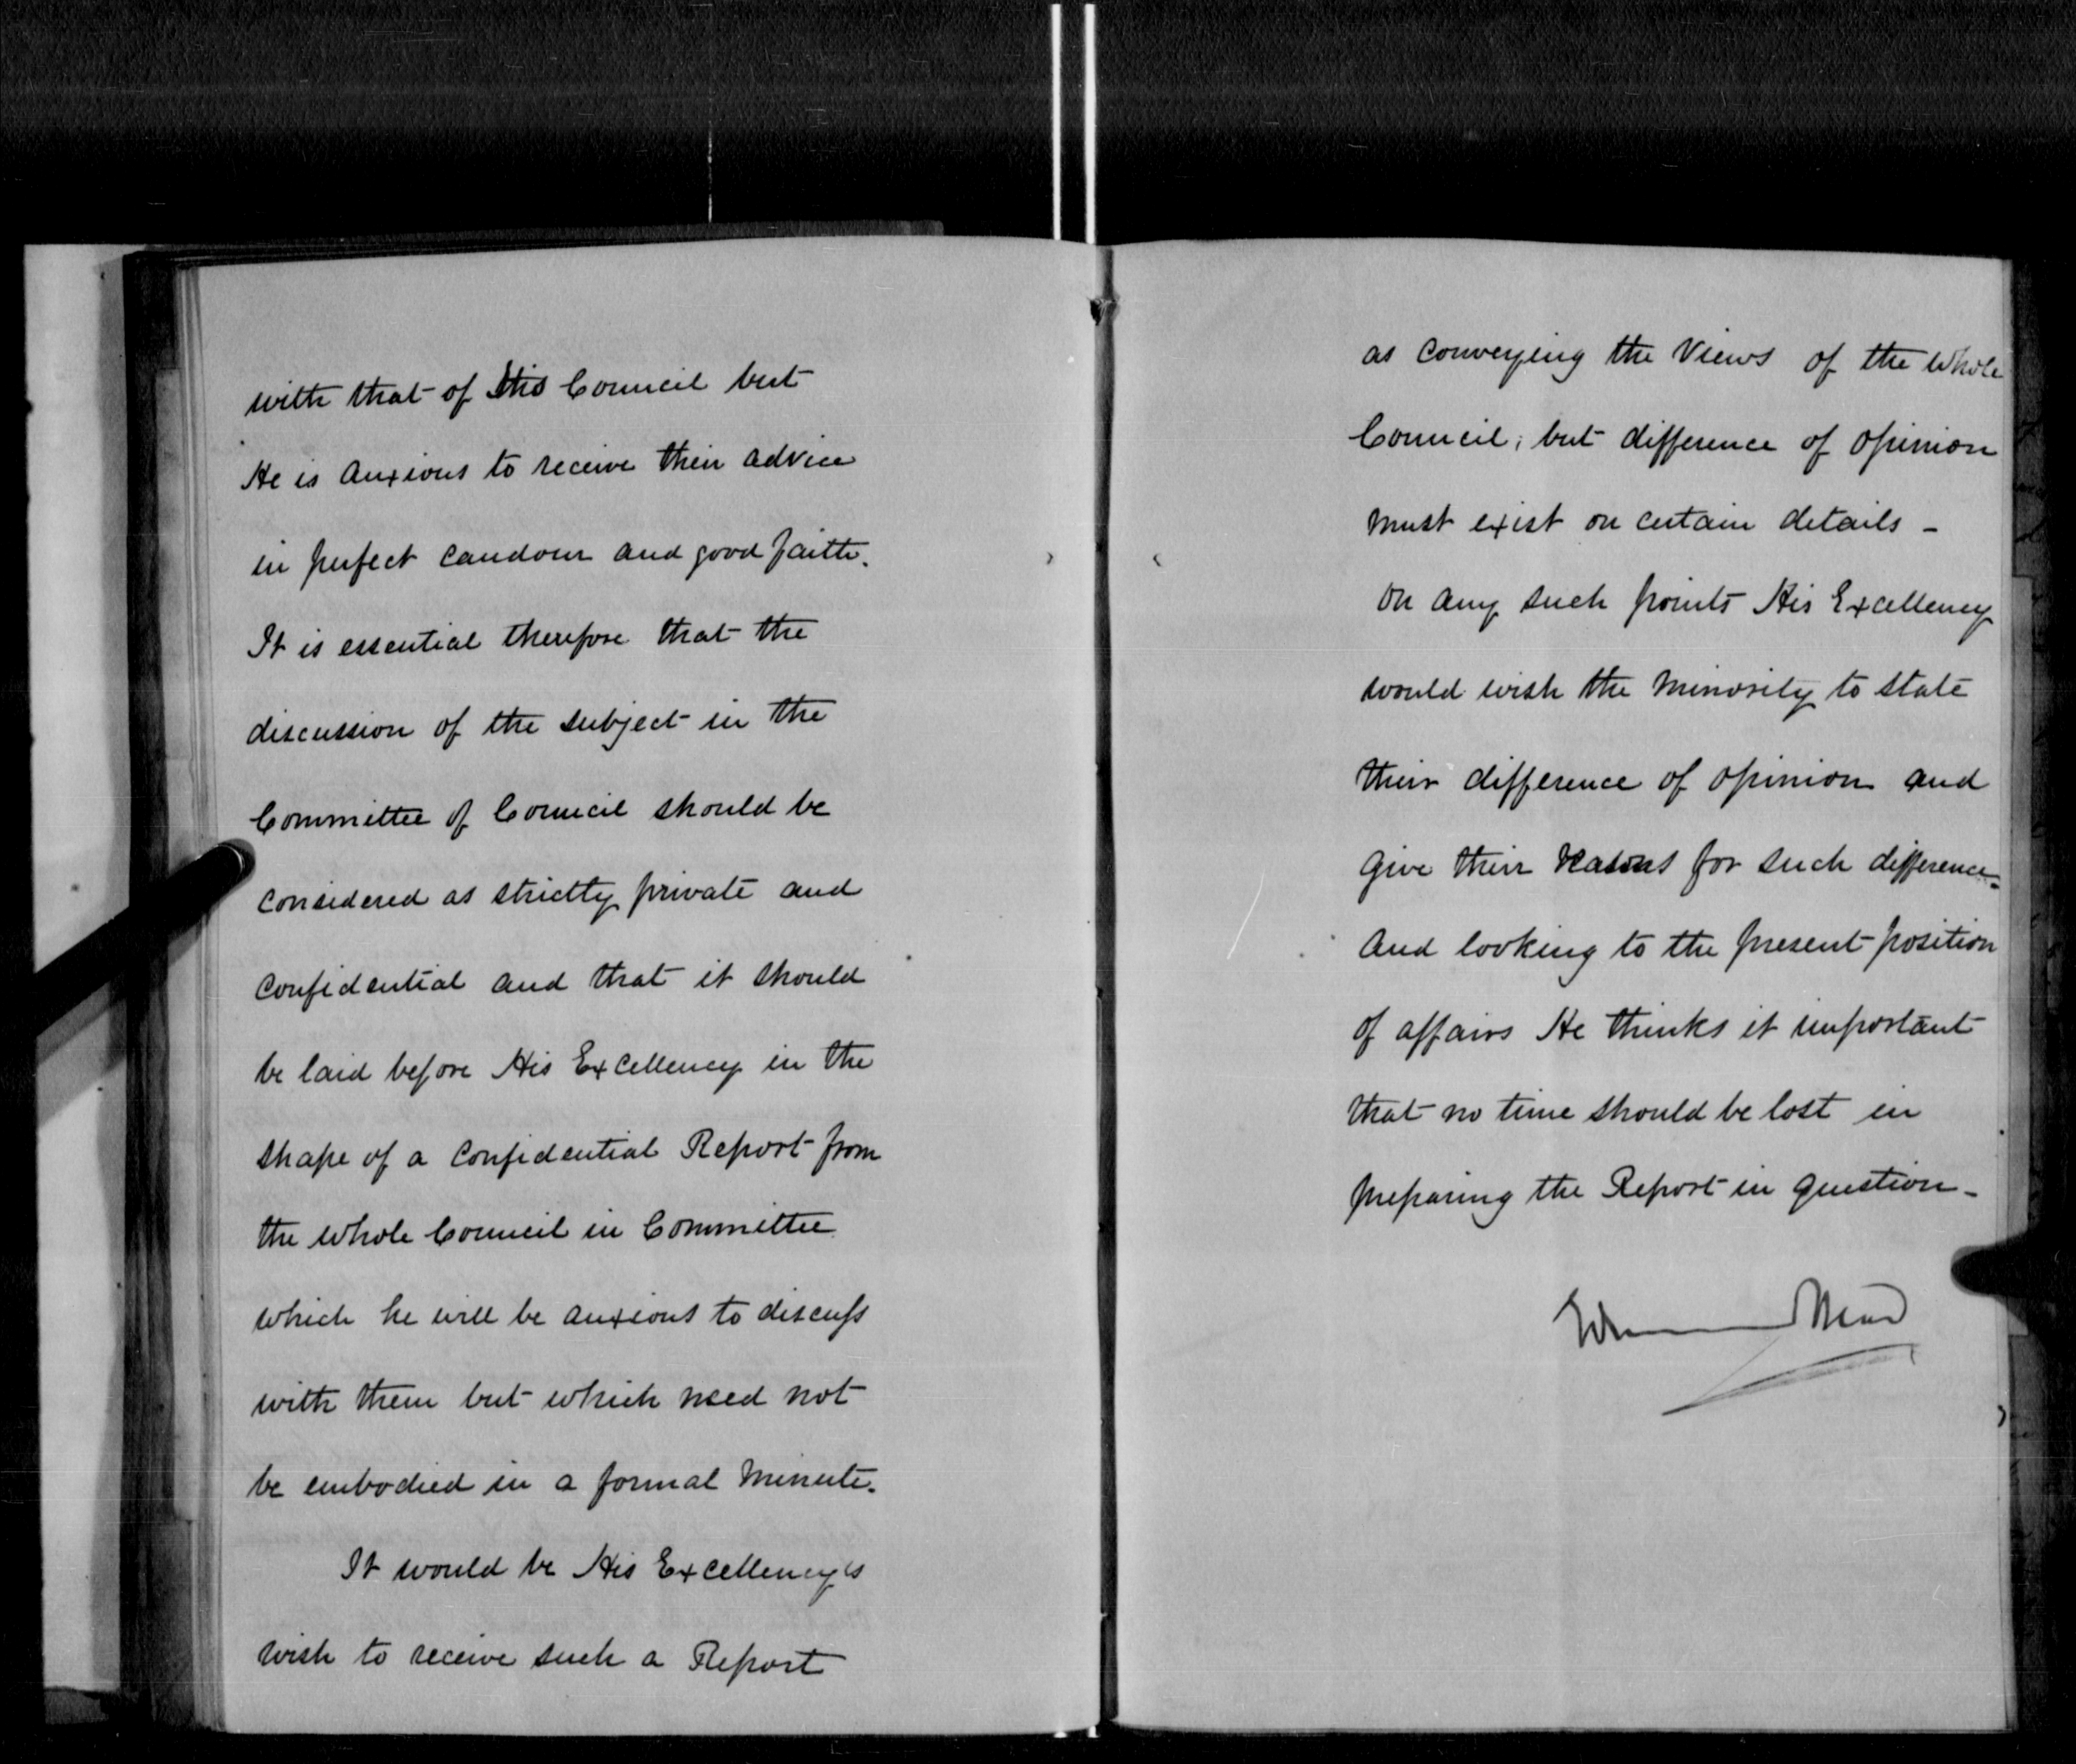 with that of His Council but
He is anxious to receive their advice
in perfect candour and good faith.
It is essential therefore that the
discussion of the subject in the
Committee of Council should be
considered as strictly private and
confidential and that it should
be laid before His Excellency in the
shape of a confidential Report from
the whole Council in Committee
which he will be anxious to discuss
with them but which need not
be embodied in a formal Minute.
It would be His Excellency's
wish to receive such a Report
as conveying the Views of the whole
Council; but difference of opinion
must exist on certain details -
on any such points His Excellency
would wish the minority to state
their difference of opinion and
give their reasons for such difference.
And looking to the present position
of affairs He thinks it important
that no time should be lost in
preparing the Report in question -